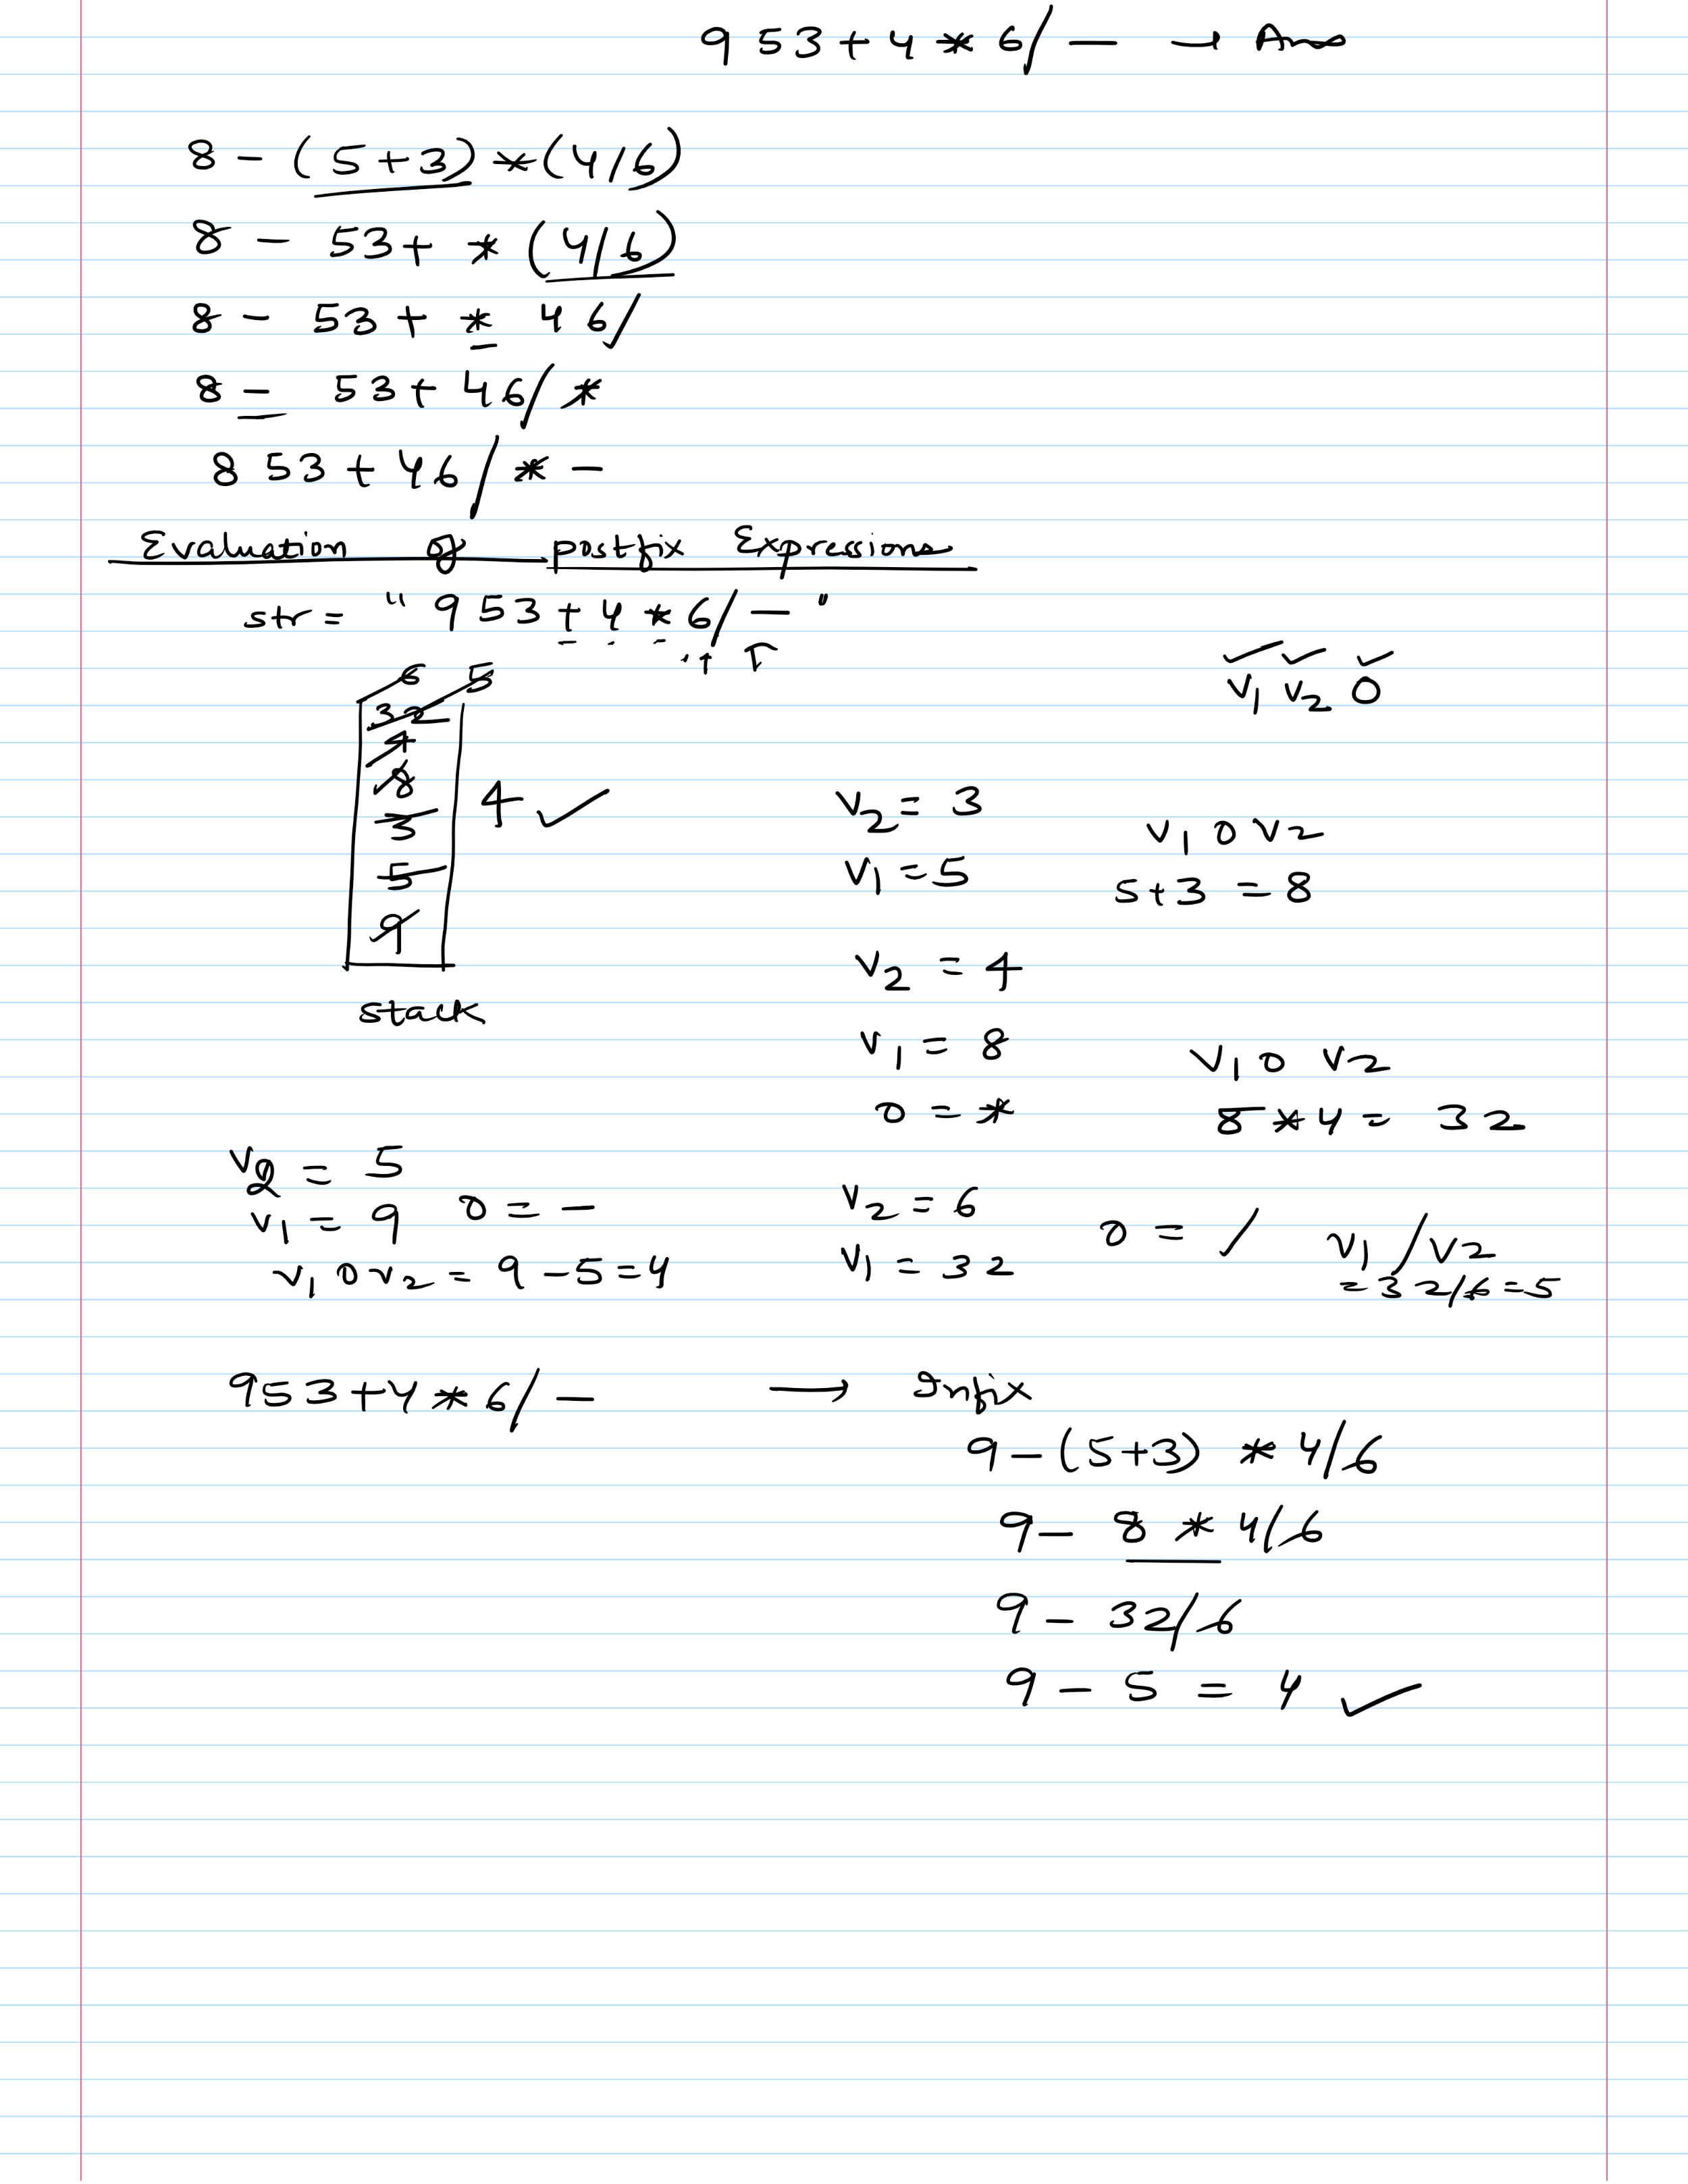 9 53+4*6/- → Ans
8 - (5+3)*(4/6)
8 - 53+ * (4/6)
8 - 53+ * 46/
8 - 53+46/*
8 53+46/*-
Evaluation of postfix Expressions
str = "9 53+4*6/-"
6 5
32
4
8
3
5
9
4 ✓
stack
v1 v2 0
v2 = 3
v1 = 5
v1 0 v2
5+3 = 8
v2 = 4
v1 = 8
0 = *
v1 0 v2
8*4 = 32
v2 = 5
v1 = 9 0 = -
v1 0 v2 = 9-5=4
v2 = 6
v1 = 32
0 = /
v1/v2
= 32/6 = 5
953+4*6/- → Infix
9-(5+3) * 4/6
9- 8 * 4/6
9 - 32/6
9 - 5 = 4 ✓